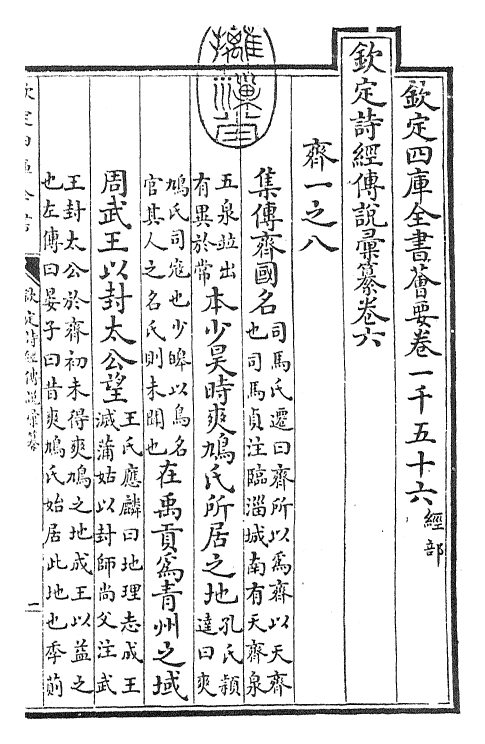 摛藻堂
欽定四庫全書薈要卷一千五十六 經部
欽定詩經傳說彙纂卷六
齊一之八
集傳齊國名司馬氏遷曰齊所以爲齊以天齊也司馬貞注臨淄城南有天齊泉
五泉竝出有異於常本少昊時爽鳩氏所居之地孔氏穎達曰爽
鳩氏司寇也少皞以鳥名官其人之名氏則未聞也在禹貢爲青州之域
周武王以封太公望王氏應麟曰地理志成王滅蒲姑以封師尚父注武
王封太公於齊初未得爽鳩之地成王以益之也左傳曰晏子曰昔爽鳩氏始居此地也季萴
欽定四庫全書
欽定詩經傳說彙纂
一